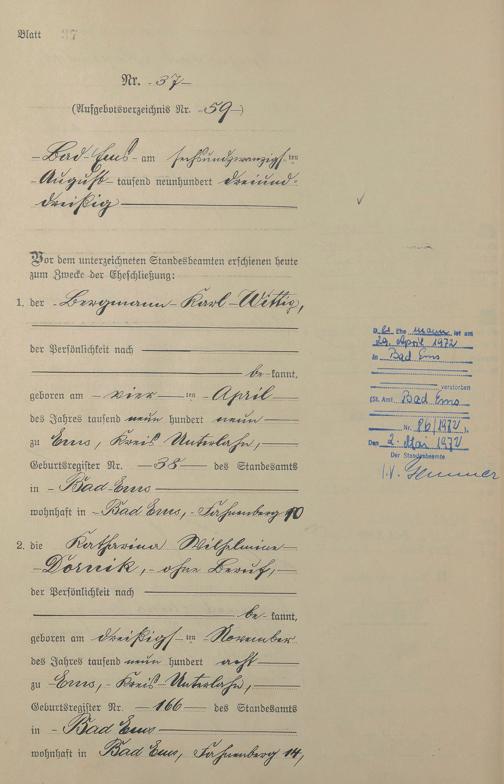 Blatt 37
Nr. 37
(Aufgebotsverzeichnis Nr. 59)
Bad Ems am sechsundzwanzigsten
August tausend neunhundert dreiund-
dreißig
Vor dem unterzeichneten Standesbeamten erschienen heute
zum Zwecke der Eheschließung:
1. der Bergmann Karl Wittig,
der Persönlichkeit nach
be kannt,
geboren am vier ten April
des Jahres tausend neun hundert neun
zu Ems, Kreis Unterlahn,
Geburtsregister Nr. 38 des Standesamts
in Bad Ems
wohnhaft in Bad Ems, Fahnenberg 10
2. die Katharina Wilhelmine
Dornik, ohne Beruf,
der Persönlichkeit nach
be kannt,
geboren am dreißigs ten November
des Jahres tausend neun hundert acht
zu Ems, Kreis Unterlahn,
Geburtsregister Nr. 166 des Standesamts
in Bad Ems
wohnhaft in Bad Ems, Fahnenberg 14,
D. Ehe mann ist am
29. April 1972
in Bad Ems
verstorben
(St. Amt Bad Ems
Nr. 86/1972).
Den 2. Mai 1972
Der Standesbeamte
I.V.